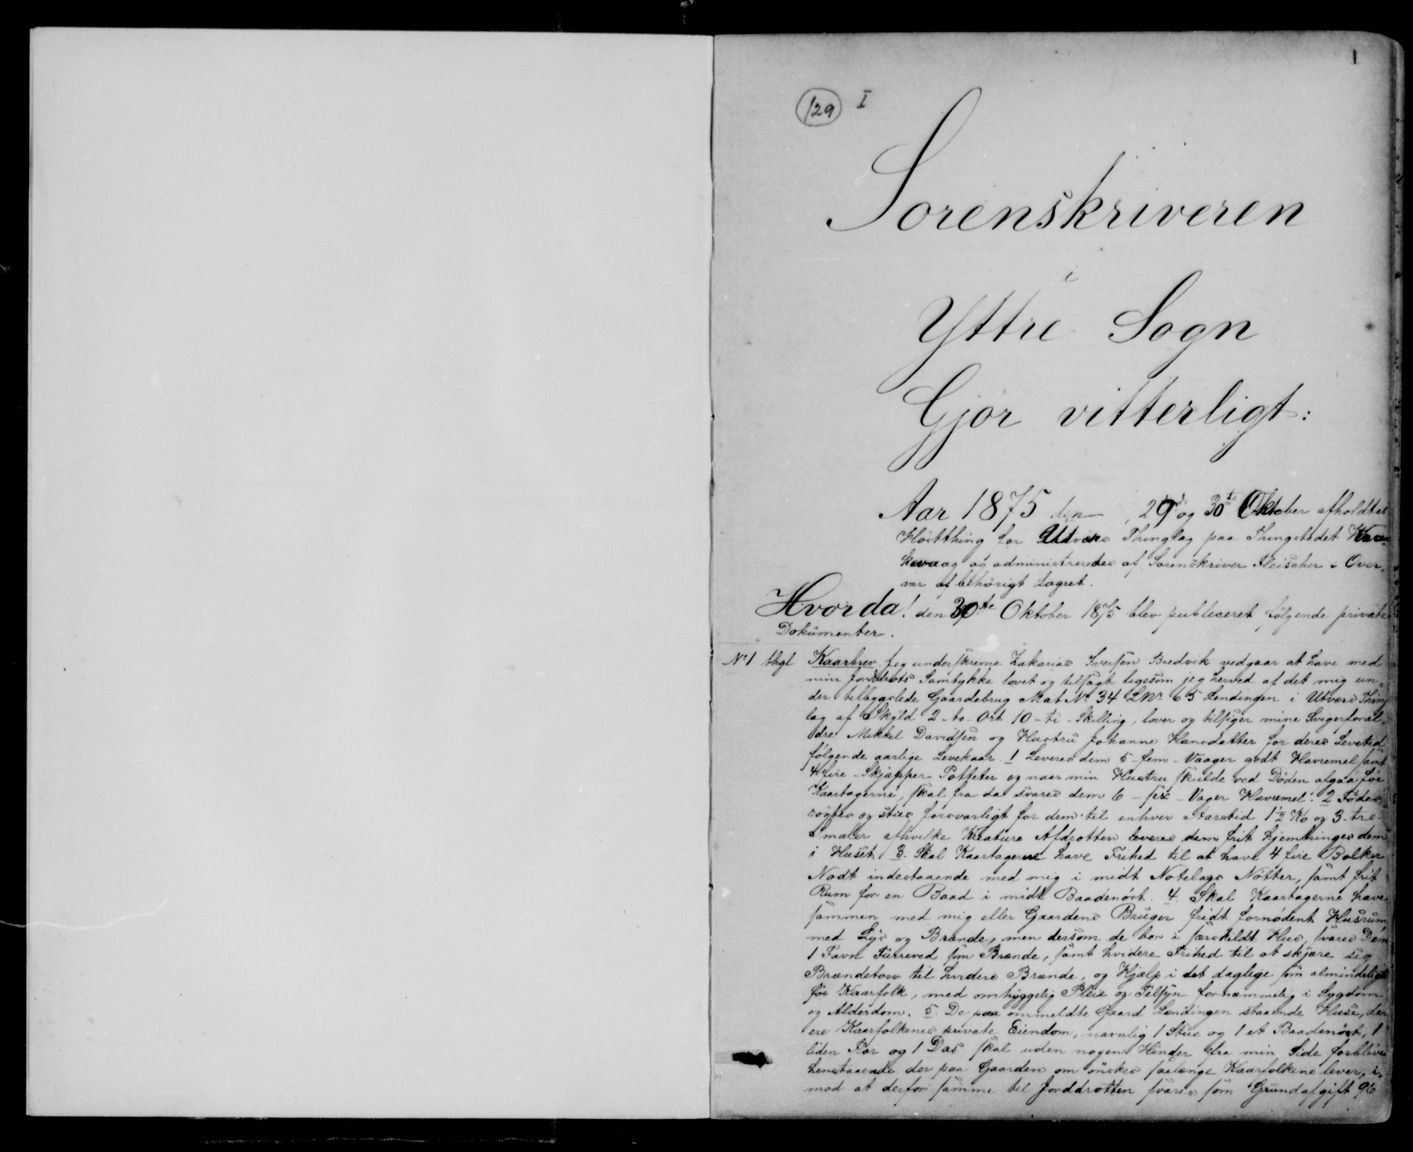 1
129 I
Sorenskriveren
i
Yttre Sogn
Gjør vitterligt:
Aar 1875 den 29 og 30te Oktober afholdtes
Høstthing for Utvær Thinglag paa Thingstedet
og administreredes af Sorenskriver Fleischer i Over-
vær af behørigt Lagret.
Hvorda! den 30te Oktober 1875 blev publiceret følgende private
Dokumenter.
No 1 thgl Kaarbrev Jeg underskrevne Zakarias Iversen Bredvik vedgaar at have med
min Jorddrots Samtykke lovet og tilsagt ligesom jeg herved af det mig un-
der tilbygslede Gaardebrug Mat No 34 LNr 65 Lendingen i Utvær Thing
lag af Skyld 2-to-Ort 10-ti-Skilling, lover og tilsiger mine Svigerforæl-
dre Mikkel Davidsen og Hustru Johanne Hansdatter for deres Levetid
følgende aarlige Levekaar. 1 Leveres dem 5-fem-Vaager godt Havremel samt
4 fire-Skjæpper Potteter og naar min Hustru skulde ved Døden afgaa før
Kaartagerne, skal fra da svares dem 6-sex-Vager Havremel. 2 Fødes,
røgtes og stues forsvarligt for dem til enhver Aarstid 1½ Ko og 3-tre-
Smaler afhvilke Kreature Afdrotten leveres dem frit hjembringes dem
i Huset. 3. Skal Kaartagerne have Frihed til at have 4 fire Bolker
Nodt indestaaende med mig i midt Notelags Nøtter, samt frit
Rum for en Baad i midt Baadenøst. 4. Skal Kaartagerne have
sammen med mig eller Gaardens Bruger fridt fornødent Husrum
med Lys og Brænde, men dersom de bor i særskildt Hus, svares Dem
1 Favn Furreved som Brænde, samt hvidere Frihed til at skjære sig
Brændetorv til hvidere Brænde, og Hjælp i det daglige som almindeligt
for Kaarfolk, med omhyggelig Pleie og Tilsyn fornæmmelig i Sygdom
og Alderdom. 5. De paa ommeldte Gaard Lendingen staaende Huse, der
ere Kaarfolkenes private Eiendom, navnlig 1 Stue og 1 et Baadenøst, 1
liden Før og 1 Das skal uden nogen Hinder fra min Side forblive
henstaaende der paa Gaarden om ønskes saalænge Kaarfolkene lever, i-
mod at derfor samme til Jorddrotten svares som Grundafgift 96